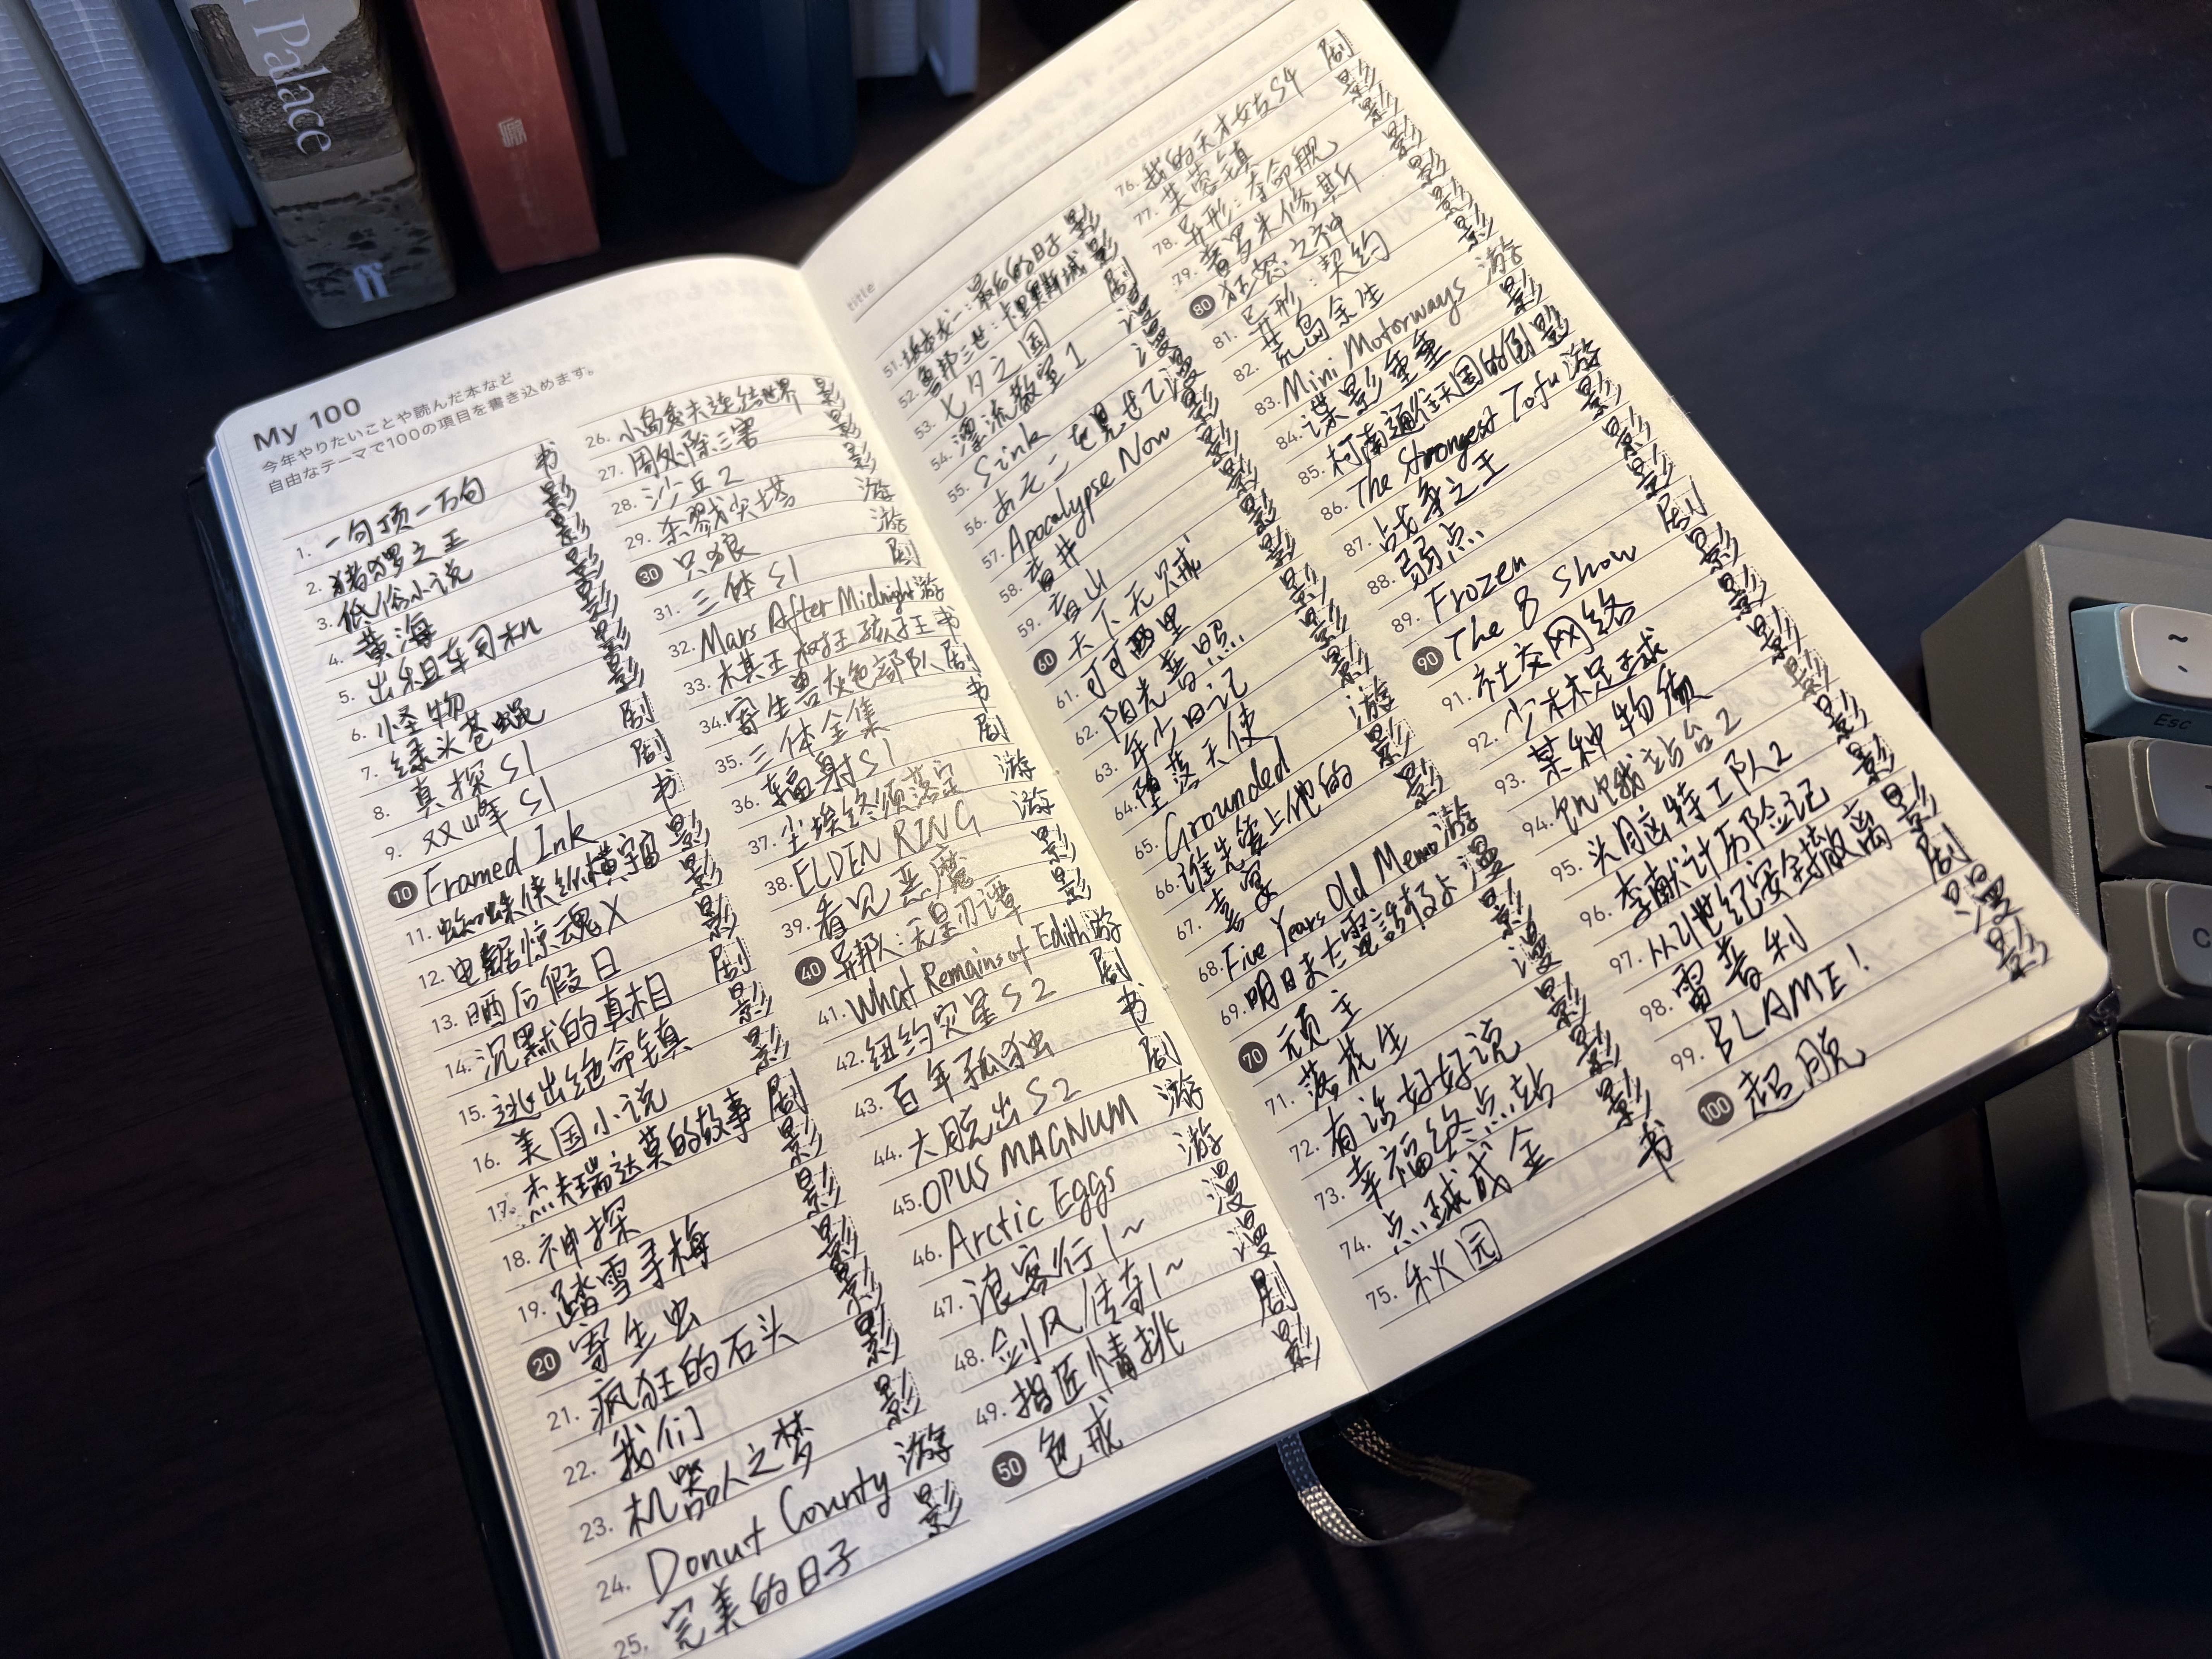 Palace
ff
My 100
今年やりたいことや読んだ本など
自由なテーマで100の項目を書き込めます。
1. 一句顶一万句 书
2. 猪猡之王 影
3. 低俗小说 影
4. 黄海 影
5. 出租车司机 影
6. 怪物 影
7. 绿头苍蝇 影
8. 真探 S1 剧
9. 双峰 S1 剧
10 Framed Ink 书
11. 蜘蛛侠纵横宇宙 影
12. 电锯惊魂X 影
13. 晒后假日 影
14. 沉默的真相 剧
15. 逃出绝命镇 影
16. 美国小说 影
17. 杰夫瑞达莫的故事 剧
18. 神探 影
19. 踏雪寻梅 影
20 寄生虫 影
21. 疯狂的石头 影
22. 我们 影
23. 机器人之梦 影
24. Donut County 游
25. 完美的日子 影
26. 小岛秀夫连结世界 影
27. 周处除三害 影
28. 沙丘2 影
29. 杀戮尖塔 游
30 只狼 游
31. 三体 S1 剧
32. Mars After Midnight 游
33. 棋王树王孩子王 书
34. 寄生兽灰色部队 剧
35. 三体全集 书
36. 辐射 S1 剧
37. 尘埃终须落定 游
38. ELDEN RING 游
39. 看见恶魔 影
40 异邦人:无皇刃谭 影
41. What Remains of Edith 游
42. 纽约灾星 S2 剧
43. 百年孤独 书
44. 大脱出 S2 剧
45. OPUS MAGNUM 游
46. Arctic Eggs 游
47. 浪客行 1~ 漫
48. 剑风传奇 1~ 漫
49. 指匠情挑 剧
50 色戒 影
title
51. 坂本龙一:最后的日子 影
52. 鲁邦三世:卡里奥斯城 影
53. 七夕之国 剧
54. 漂流教室 1 漫
55. Sink 漫
56.
57. Apocalypse Now 影
58. 盲井 影
59. 盲山 影
60 天下无贼 影
61. 可可西里 影
62. 阳光普照 影
63. 年少日记 影
64. 堕落天使 影
65. Grounded 游
66. 谁先爱上他的 影
67. 毒宴 影
68. Five Years Old Memo 游
69. 漫
70 顽主 影
71. 落花生 漫
72. 有话好好说 影
73. 幸福终点站 影
74. 点球成金 影
75. 秋园 书
76. 我的天才女友 S4 剧
77. 芙蓉镇 影
78. 异形:夺命舰 影
79. 普罗米修斯 影
80 狂怒之神 影
81. 异形:契约 影
82. 荒岛余生 影
83. Mini Motorways 游
84. 谍影重重 影
85. 柯南通往天国的倒 影
86. The Strongest Tofu 游
87. 战争之王 影
88. 弱点 影
89. Frozen 影
90 The 8 Show 剧
91. 社交网络 影
92. 少林足球 影
93. 某种物质 影
94. 饥饿站台2 影
95. 头脑特工队2 影
96. 李献计历险记 影
97. 从21世纪安全撤离 影
98. 雷普利 剧
99. BLAME! 漫
100 超脱 影
Esc